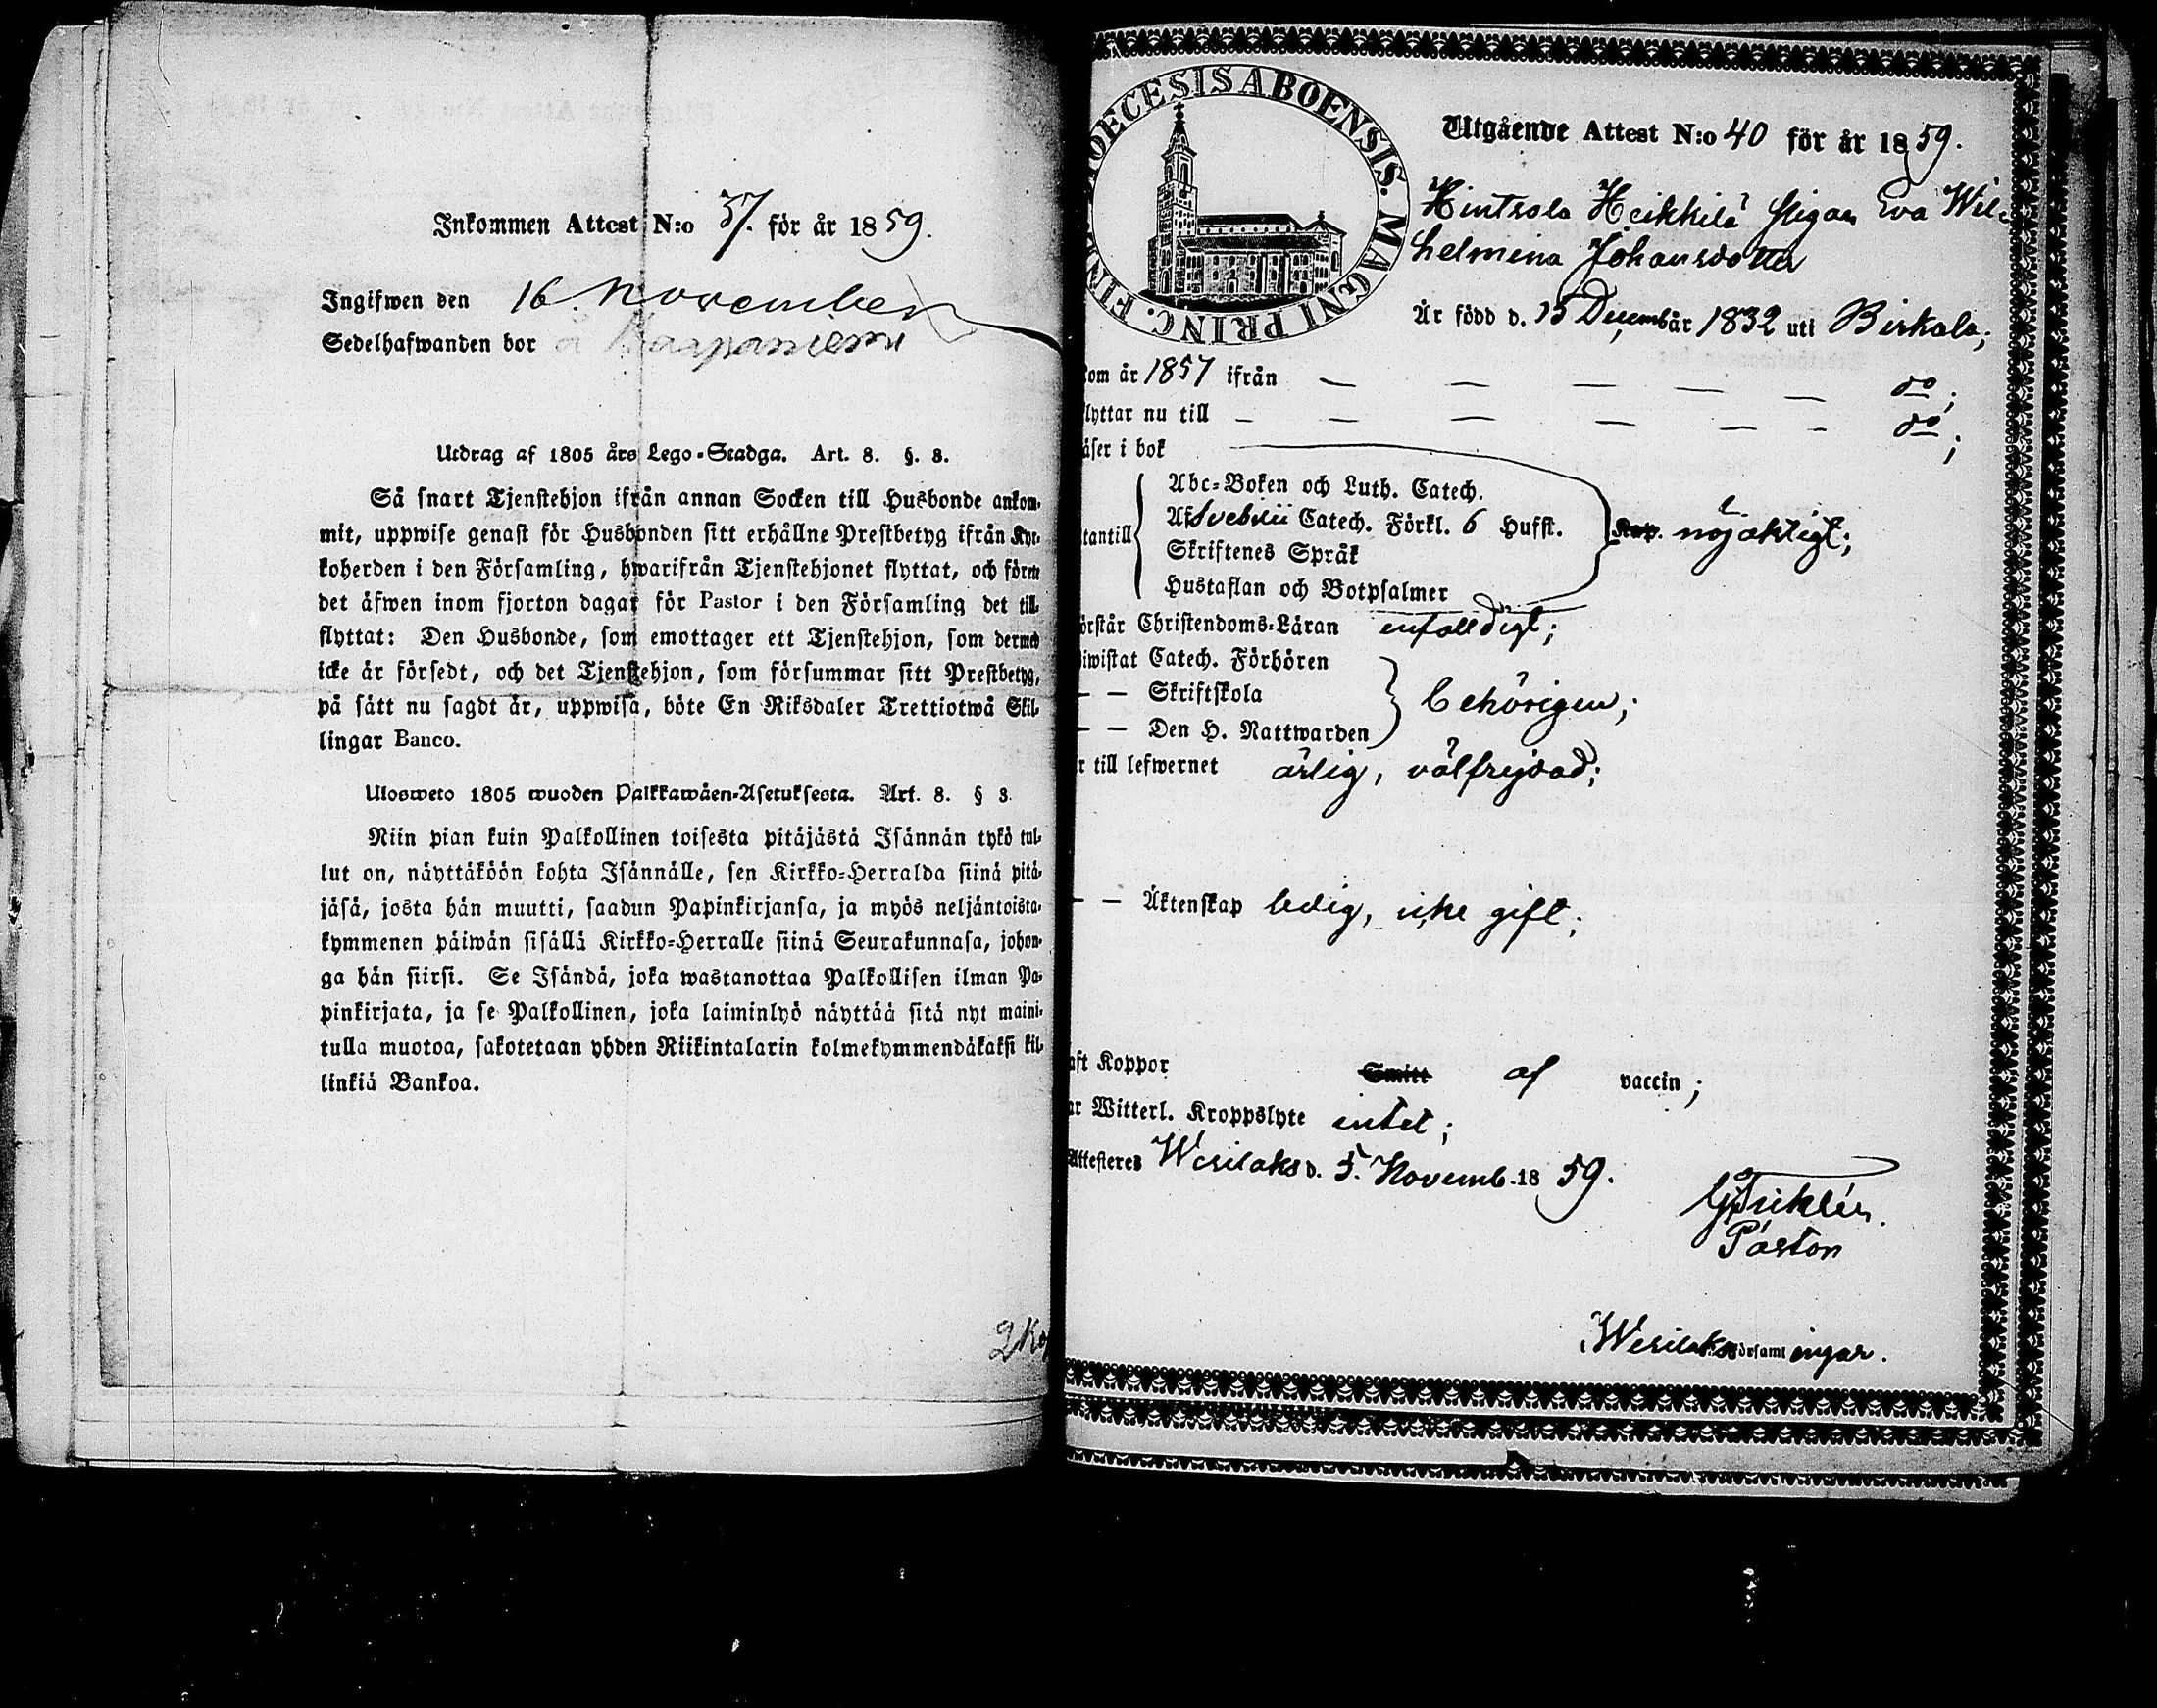 Inkommen Attest N:o 37. för år 1859.
Ingifwen den 16 November
Sedelhafwanden bor å Haapaniemi
Utdrag af 1805 års Lego-Stadga. Art. 8. §. 8.
Så snart Tjenstehjon ifrån annan Socken till Husbonde ankom-
mit, uppwise genast för Husbonden sitt erhållne Prestbetyg ifrån Kyr-
koherden i den Församling, hwarifrån Tjenstehjonet flyttat, och förete
det äfwen inom fjorton dagar för Pastor i den Församling det till-
flyttat: Den Husbonde, som emottager ett Tjenstehjon, som dermed
icke är försedt, och det Tjenstehjon, som försummar sitt Prestbetyg,
på sätt nu sagdt är, uppwisa, böte En Riksdaler Trettiotwå Skil-
lingar Banco.
Ulosweto 1805 wuoden Palkkawäen-Asetuksesta. Art. 8. § 8.
Niin pian kuin Palkollinen toisesta pitäjästä Isännän tykö tul-
lut on, näyttäköön kohta Isännälle, sen Kirkko-Herralda siinä pitä-
jäsä, josta hän muutti, saadun Papinkirjansa, ja myös neljäntoista-
kymmenen päiwän sisällä Kirkko-Herralle siinä Seurakunnasa, johon-
ga hän siirsi. Se Isändä, joka wastanottaa Palkollisen ilman Pa-
pinkirjata, ja se Palkollinen, joka laiminlyö näyttää sitä nyt maini-
tulla muotoa, sakotetaan yhden Riikintalarin kolmekymmendäkaksi kil-
linkiä Bankoa.
2 Kop
DIOECESIS ABOENSIS. MAGNI PRINC. FINL.
Utgående Attest N:o 40 för år 1859.
Hintsola Heikkilä Pigan Eva Wil-
helmina Johansdotter
Är född d. 15 Decemb år 1832 uti Birkala;
kom år 1857 ifrån — — — — — do;
flyttar nu till — — — — — — do;
läser i bok
Abc-Boken och Luth. Catech.
Af Svebelii Catech. Förkl. 6 Hufst.
utantill Kap. nöjaktigt;
Skriftenes Språk
Hustaflan och Botpsalmer
förstår Christendoms-Läran enfalldigt;
biwistat Catech. Förhören
— — Skriftskola behörigen;
— — Den H. Nattwarden
är till lefwernet ärlig, välfrejdad;
— — Äktenskap ledig, icke gift;
haft Koppor Smitt af vaccin;
har Witterl. Kroppslyte intet;
Attesteres Wesilaks d. 5. Novemb. 1859.
Pastor
Wesilaks Församlingar.